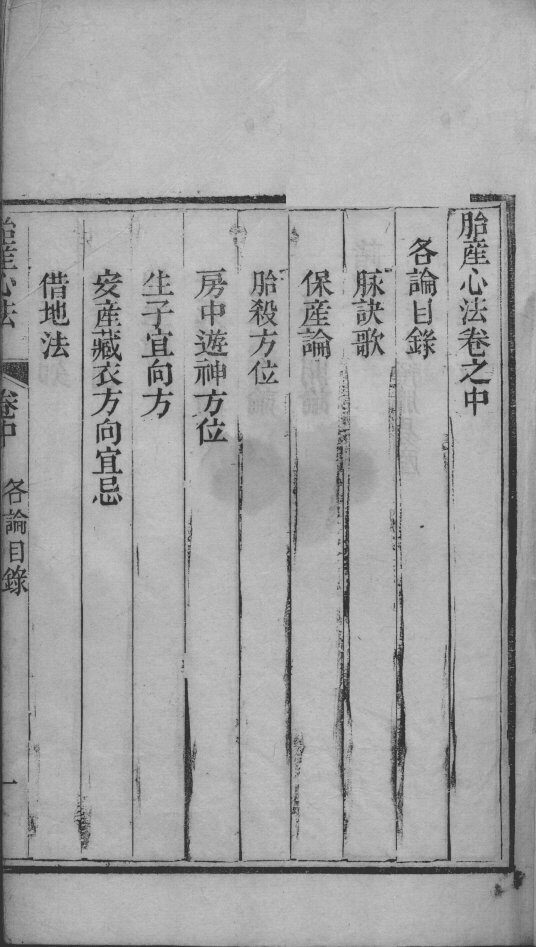 胎産心法卷之中
各論目錄
脉訣歌
保産論
胎殺方位
房中遊神方位
生子宜向方
安産藏衣方向宜忌
借地法
胎産心法 卷中 各論目錄 一